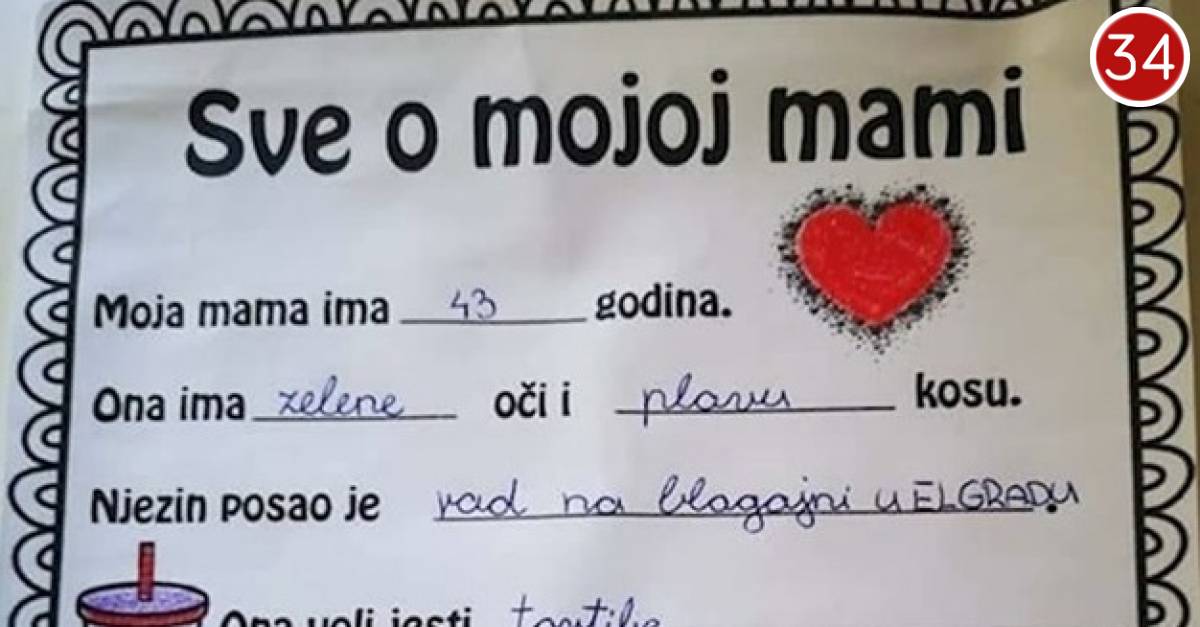 34
Sve o mojoj mami
Moja mama ima 43 godina.
Ona ima zelene oči i plavu kosu.
Njezin posao je rad na blagajni u ELGRADU
Ona voli jesti tortilje